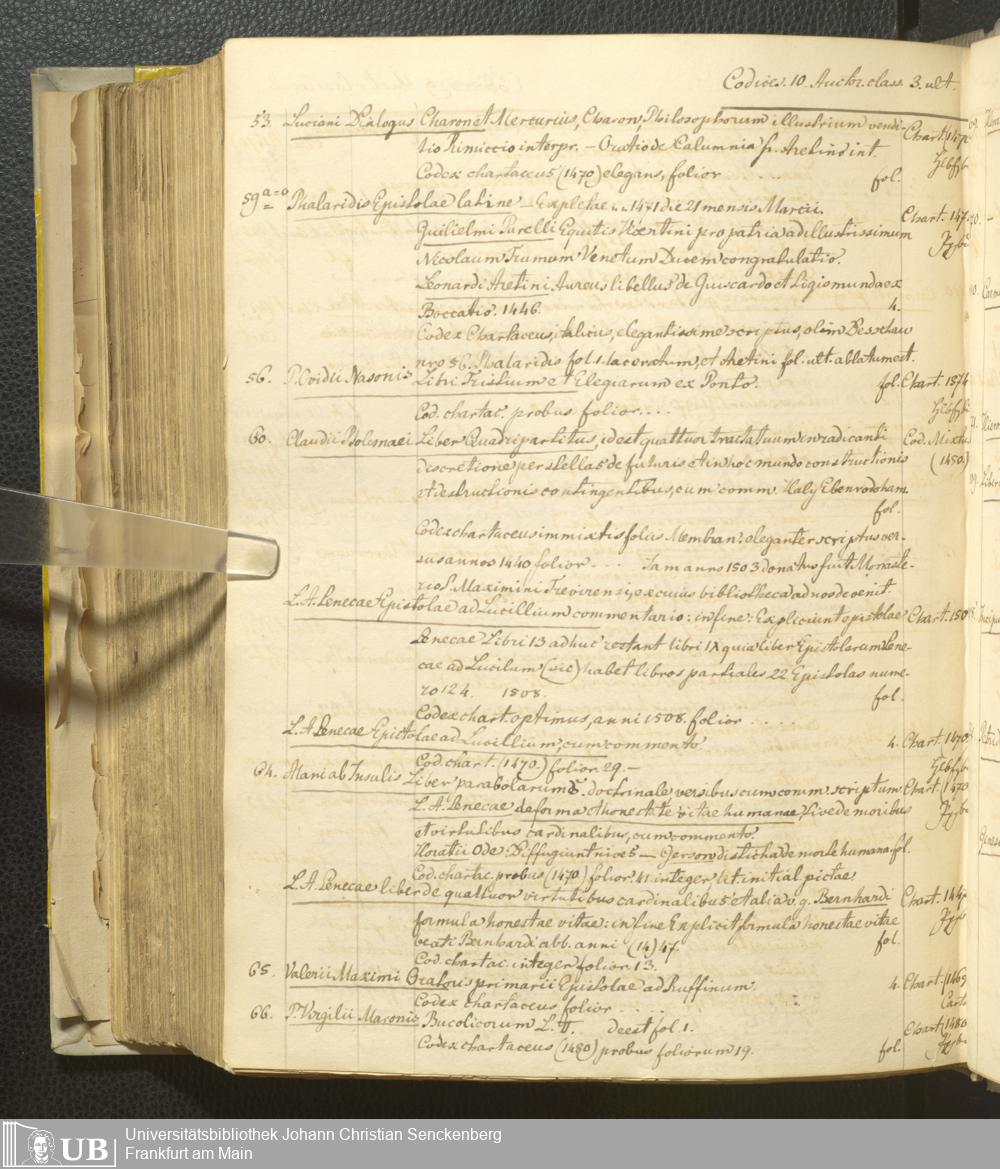 Codices. 10. Auctor. class. 3. ult.
53. Luciani Dialogus Charon et Mercurius, Charon, Philosophorum illustrium vendi- Chart. 147
tio Rinuccio interpr. — Oratio de Calumnia fr. Aretino int.
Codex chartaceus (1470) elegans, folior . . . . fol.
59 Phalaridis Epistolae latine — Expletae . . 1471 die 21 mensis Marcii. Chart. 147
Guilielmi Purelli Equitis Vicentini pro patria ad illustrissimum
Nicolaum Trunum Venetum Ducem congratulatio.
Leonardi Aretini Aureus libellus de Guiscardo et Sigismunda ex
Boccatio. 1446. 4.
Codex Chartaceus, italicus, elegantissime scriptus, olim
nro 56. Phalaridis fol. 1. laceratum, et Aretini fol. ult. ablatum est.
56. P. Ovidii Nasonis Libri Tristium et Elegiarum ex Ponto. fol. Chart. 1574
Cod. chartac. probus folior. . . .
60. Claudii Ptolemaei Liber Quadripartitus, id est quattuor tractatuum in radicanti Cod. Mixtus
discretione per stellas de futuris et in hoc mundo constructionis (1450.)
et destructionis contingentibus, cum comm. Haly Ebenrodoham.
fol.
Codex chartaceus immixtis foliis Membran. eleganter scriptus ver-
sus annos 1440 folior . . . Jam anno 1503 donatus fuit Monaste-
rio S. Maximini Trevirensi, ex cuius bibliotheca ad nos devenit.
L. A. Senecae Epistolae ad Lucillium commentario: in fine: Expliciunt epistolae Chart. 150
Senecae Libri 13 adhuc restant libri IX quia liber Epistolarum Sene-
cae ad Lucilum (sic) habet libros partiales 22 Epistolas nume-
ro 124. 1508. fol.
Codex chart. optimus, anni 1508. folior . . . .
L. A. Senecae Epistolae ad Lucillium, cum commento. 4. Chart. 1470
Cod. chart. (1470.) folior. 29. —
64. Alani ab Insulis Liber parabolarum s. doctrinale versibus cum comm. scriptum Chart. (1470
L. A. Senecae de forma et honestate vitae humanae, sive de moribus
et virtutibus cardinalibus, cum commento.
Horatii Ode: Diffugiunt nives — Gerson disticha de morte humana. fol.
Cod. chartac. probus (1470) folior. 41. integer et initial. pictae
L. A. Senecae liber de quattuor virtutibus cardinalibus et alia v. g. Bernhardi Chart. 1447
formula honestae vitae: in fine Explicit formula honestae vitae
beati Bernhardi abb. anni (14)47. fol.
Cod. chartac. integer folior 13.
65. Valerii Maximi Oratoris primarii Epistolae ad Ruffinum. 4. Chart. (1469
Codex chartaceus folior . . . .
66. P. Virgilii Maronis Bucolicorum L. Deest fol. 1. Chart. (1480
Codex chartaceus (1480) probus foliorum 19. fol.
UB
Universitätsbibliothek Johann Christian Senckenberg
Frankfurt am Main